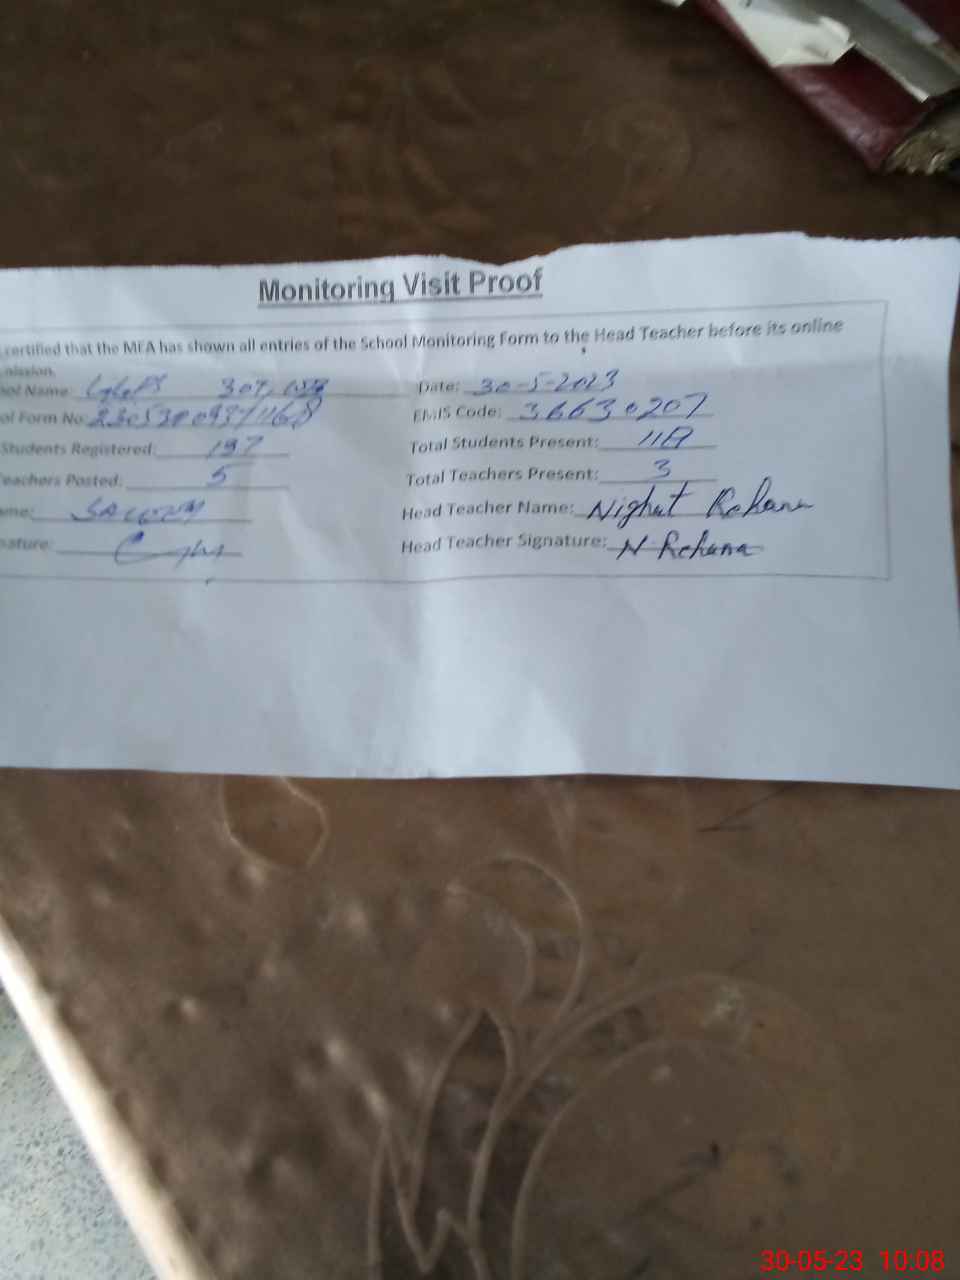 Monitoring Visit Proof
certified that the MEA has shown all entries of the School Monitoring Form to the Head Teacher before its online
mission.
ool Name: 307 Date: 30-5-2023
ol Form No: EMIS Code: 36630207
Students Registered: 197 Total Students Present: 118
eachers Posted: 5 Total Teachers Present: 3
ame: Head Teacher Name: Nighut Rehana
nature: Head Teacher Signature: N. Rehana
30-05-23 10:08